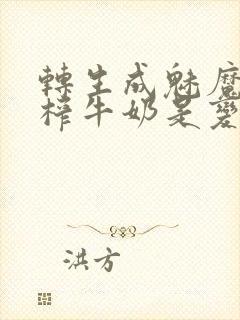 轉生成魅魔
榨牛奶是變
洪方